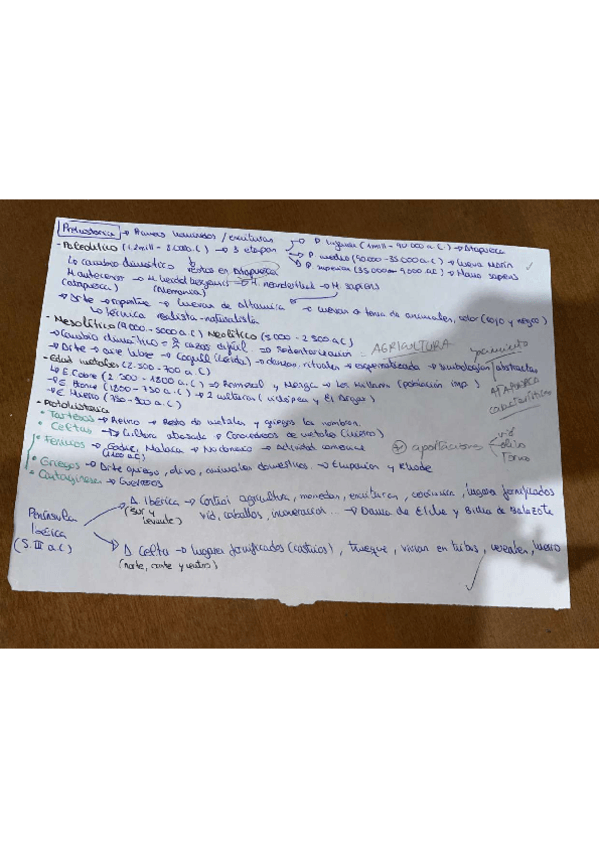 Prehistoria → Primeros humanos / escrituras
- Paleolítico (1.2mill - 8000 a.C) → 3 etapas
→ P. inferior (1mill - 90000 a.C) → Atapuerca
→ P medio (90000 - 35000 a.C) → Cueva Morín
→ P superior (35000 - 9000 a.C) → Homo sapiens
↳ cambio climático restos en Atapuerca
H antecesor → H. heidelbergensis → H. neanderthal → H. sapiens
(Atapuerca) (Alemania)
→ Arte → rupestre → cuevas de Altamira → cuevas → tema de animales, color (rojo y negro)
↳ técnica realista-naturalista
- Mesolítico (9000 - 5000 a.C) Neolítico (5000 - 2500 a.C)
→ Cambio climático = caza difícil ⇒ Sedentarización = AGRICULTURA
→ Arte → aire libre → Cogull (Lérida) → danzas, rituales → esquematizada → simbologías/abstractas
- Edad metales (2.500 - 700 a.C)
↳ E. Cobre (2500 - 1800 a.C) → Romeral y Menga → Los Millares (población imp.)
→ E Bronce (1800 - 750 a.C) → 2 culturas
→ E Hierro
yacimiento
ATAPUERCA
características
- Protohistoria
• Tartesos → Reino → Resto de metales y griegos los nombran.
• Celtas → Cultura atrasada → Conocedores de metales (hierro)
• Fenicios → Gadir, Malaca → → Actividad comercial
(1100 a.C)
⊛ aportaciones
vid
olivo
torno
• Griegos → Arte griego, olivo, animales domésticos → Emporion y Rhode
• Cartagineses → Guerreros
Península
Ibérica
(S. III a.C)
A. Ibérica → Control agricultura, monedas, escrituras, cerámica, lugares fortificados
(sur y
levante)
vid, caballos, → Dama de Elche y Bicha de Balazote
A Celta → lugares fortificados (castros), trueque, vivían en tribus, cereales, hierro
(norte, oeste y centro)